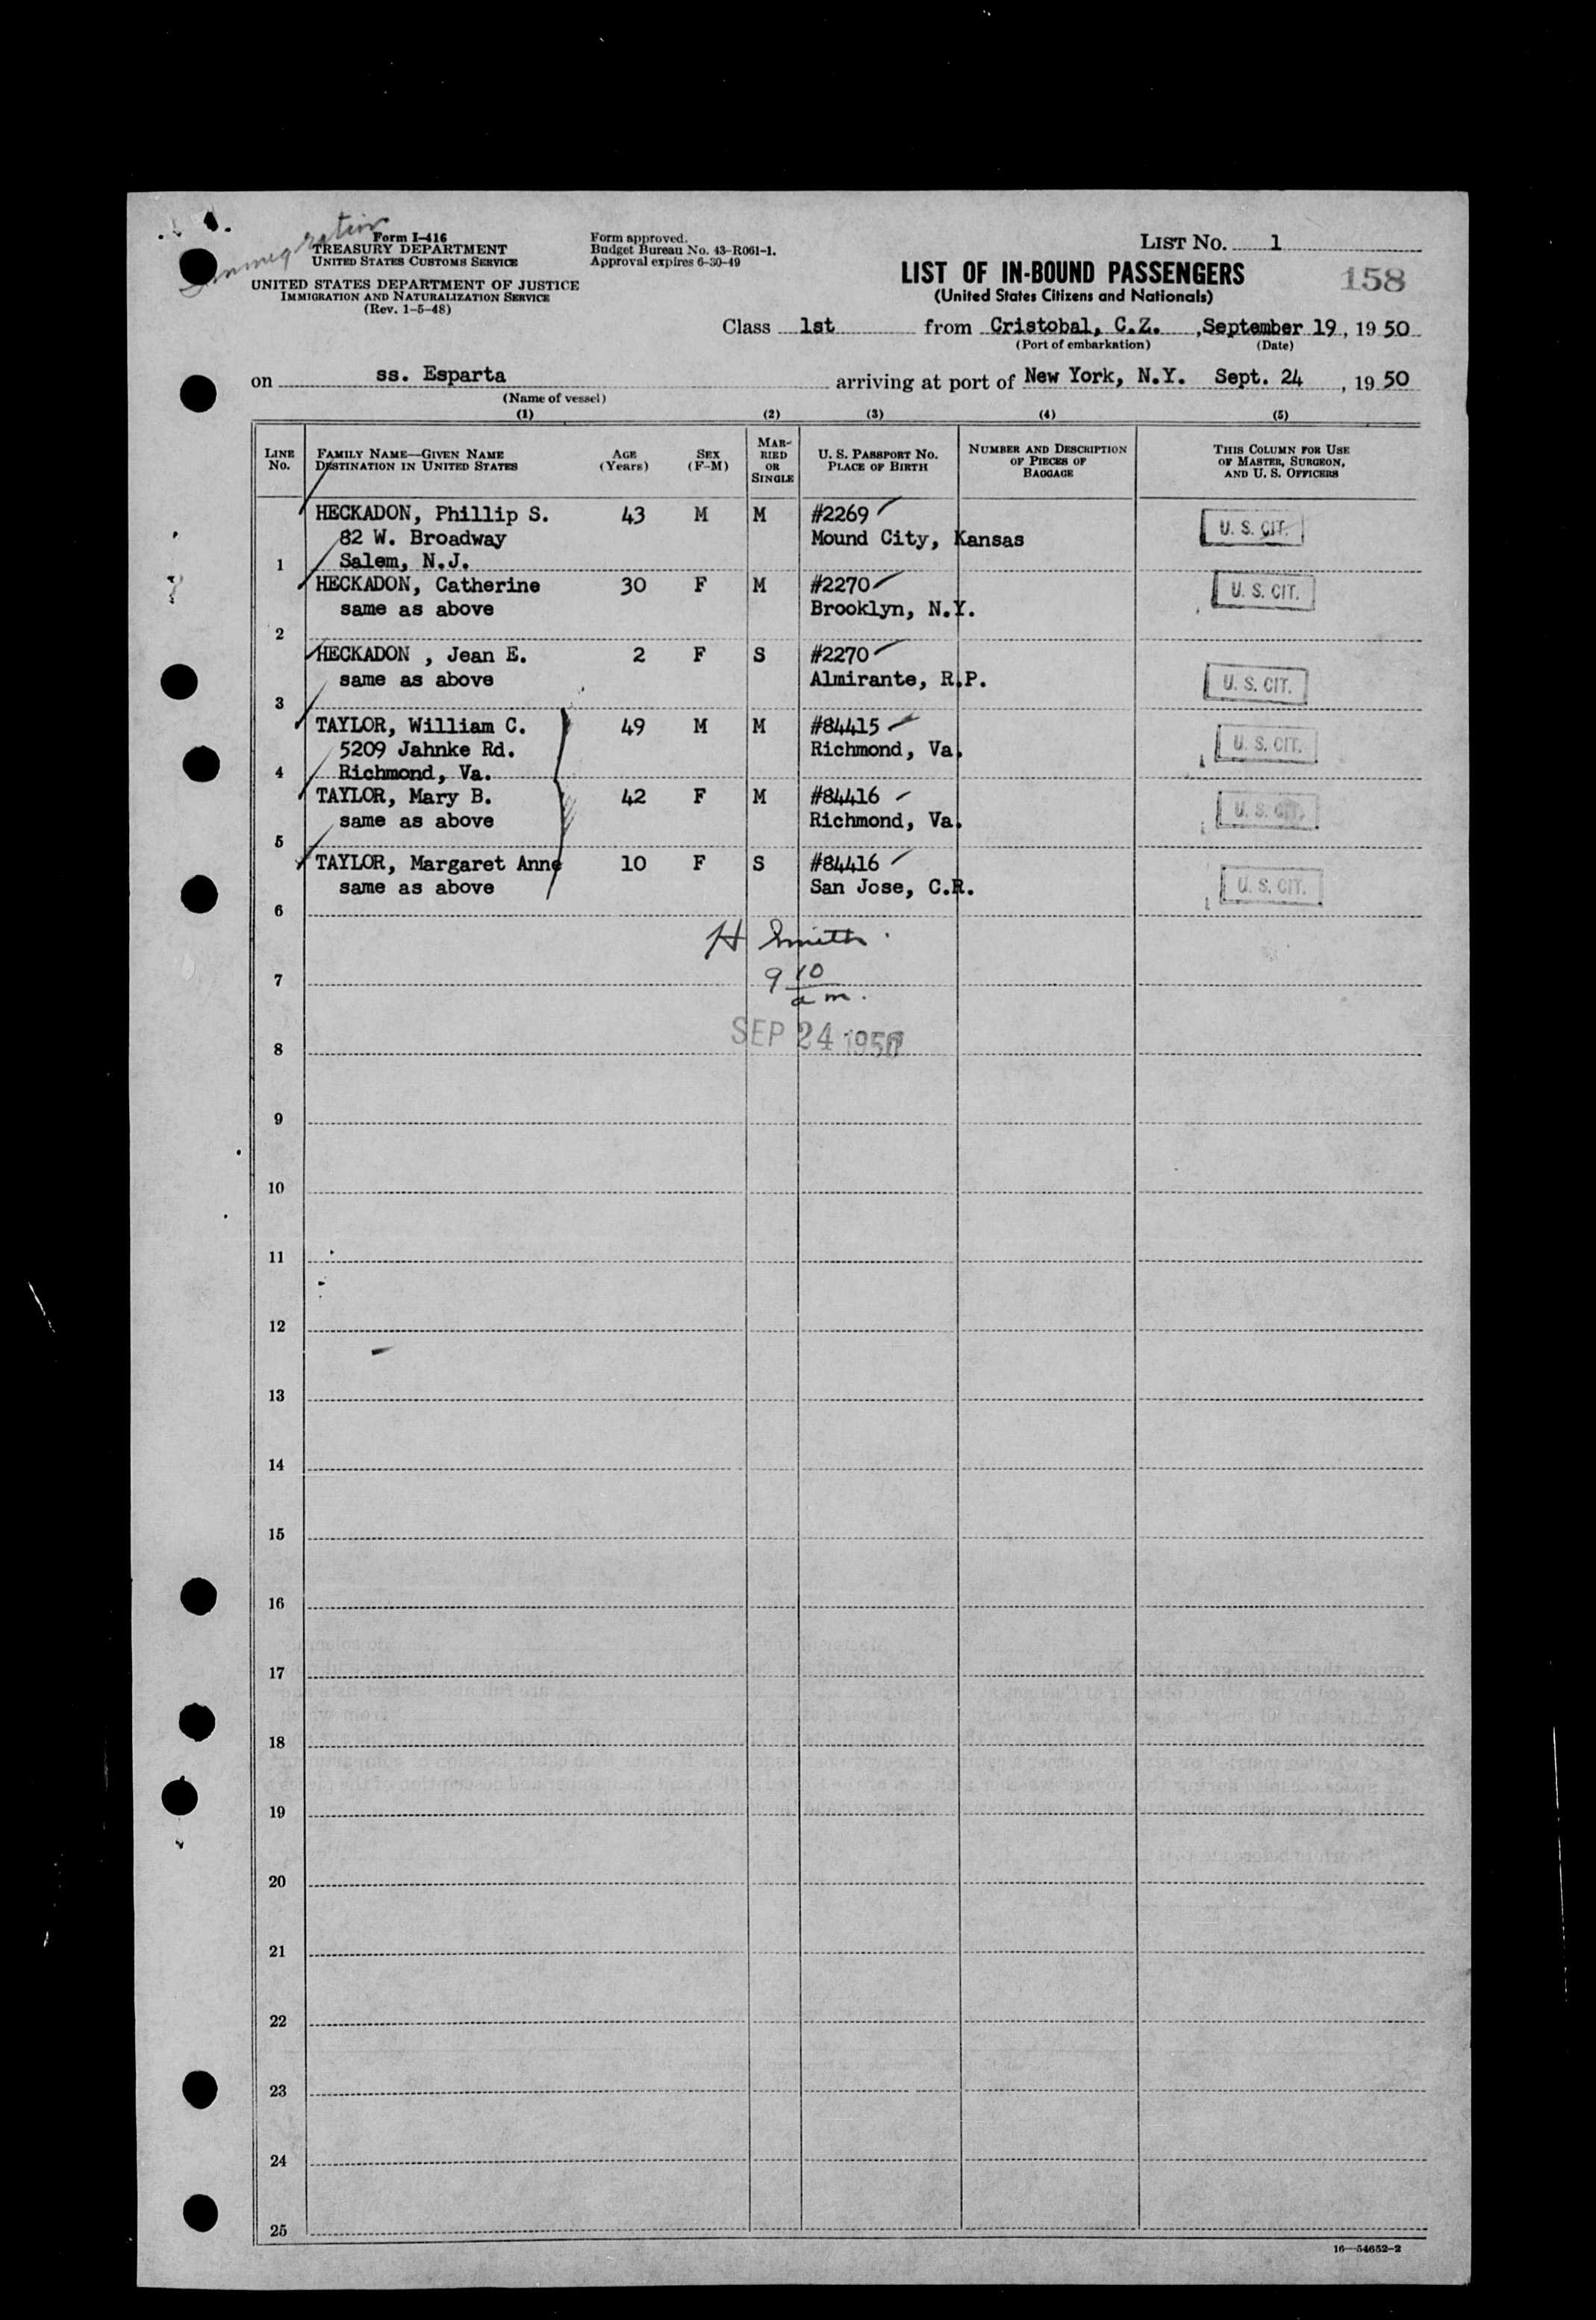 Immigration
Form I-416
TREASURY DEPARTMENT
UNITED STATES CUSTOMS SERVICE
UNITED STATES DEPARTMENT OF JUSTICE
IMMIGRATION AND NATURALIZATION SERVICE
(Rev. 1-5-48)
Form approved.
Budget Bureau No. 43-R061-1.
Approval expires 6-30-49
LIST NO. 1
LIST OF IN-BOUND PASSENGERS
(United States Citizens and Nationals)
158
Class 1st from Cristobal, C.Z. , September 19, 1950
(Port of embarkation) (Date)
on ss. Esparta arriving at port of New York, N.Y. Sept. 24, 1950
(Name of vessel)
(1) (2) (3) (4) (5)
LINE NO.
FAMILY NAME—GIVEN NAME
DESTINATION IN UNITED STATES
AGE (Years)
SEX (F-M)
MARRIED OR SINGLE
U. S. PASSPORT NO.
PLACE OF BIRTH
NUMBER AND DESCRIPTION OF PIECES OF BAGGAGE
THIS COLUMN FOR USE OF MASTER, SURGEON, AND U. S. OFFICERS
HECKADON, Phillip S. 43 M M #2269 U. S. CIT.
82 W. Broadway Mound City, Kansas
1 Salem, N.J.
HECKADON, Catherine 30 F M #2270 U. S. CIT.
same as above Brooklyn, N.Y.
2
HECKADON , Jean E. 2 F S #2270
same as above Almirante, R.P. U. S. CIT.
3
TAYLOR, William C. 49 M M #84415
5209 Jahnke Rd. Richmond, Va. U. S. CIT.
4 Richmond, Va.
TAYLOR, Mary B. 42 F M #84416
same as above Richmond, Va. U. S. CIT.
5
TAYLOR, Margaret Anne 10 F S #84416
same as above San Jose, C.R. U. S. CIT.
6
H Smith
7 9 10 a m.
SEP 24 1950
8
9
10
11
12
13
14
15
16
17
18
19
20
21
22
23
24
25
16—54652-2